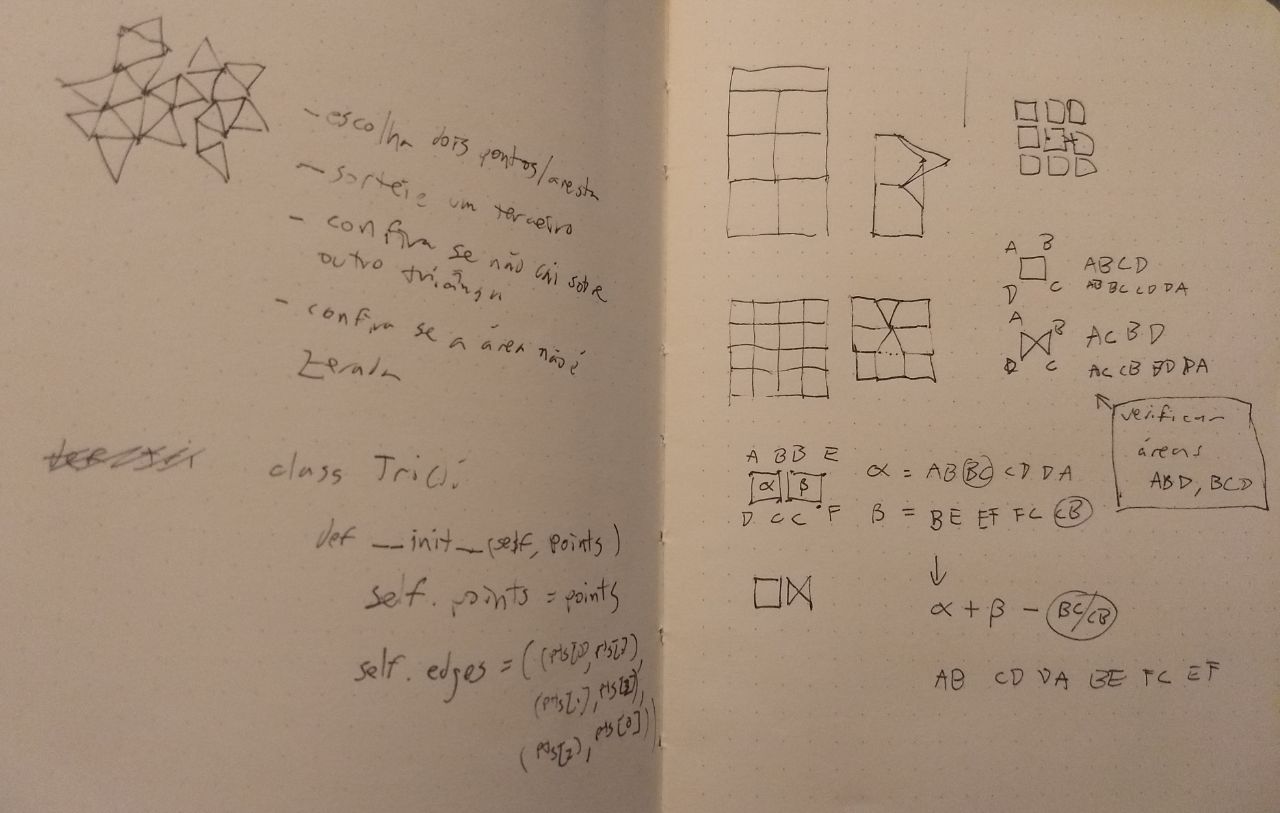 - escolha dois pontos/aresta
- sorteie um terceiro
- confira se não cai sobre
outro triângu
- confira se a área não é
zerada
class Tri():
def __init__(self, points)
self.points = points
self.edges = ((pts[0], pts[1]),
(pts[1], pts[2]),
(pts[2], pts[0]))
A B
D C
ABCD
AB BC CD DA
A B
D C
ACBD
AC CB BD DA
verificar
áreas
ABD, BCD
A B B E
α β
D C C F
α = AB BC CD DA
β = BE EF FC CB
↓
α + β - BC/CB
AB CD DA BE FC EF